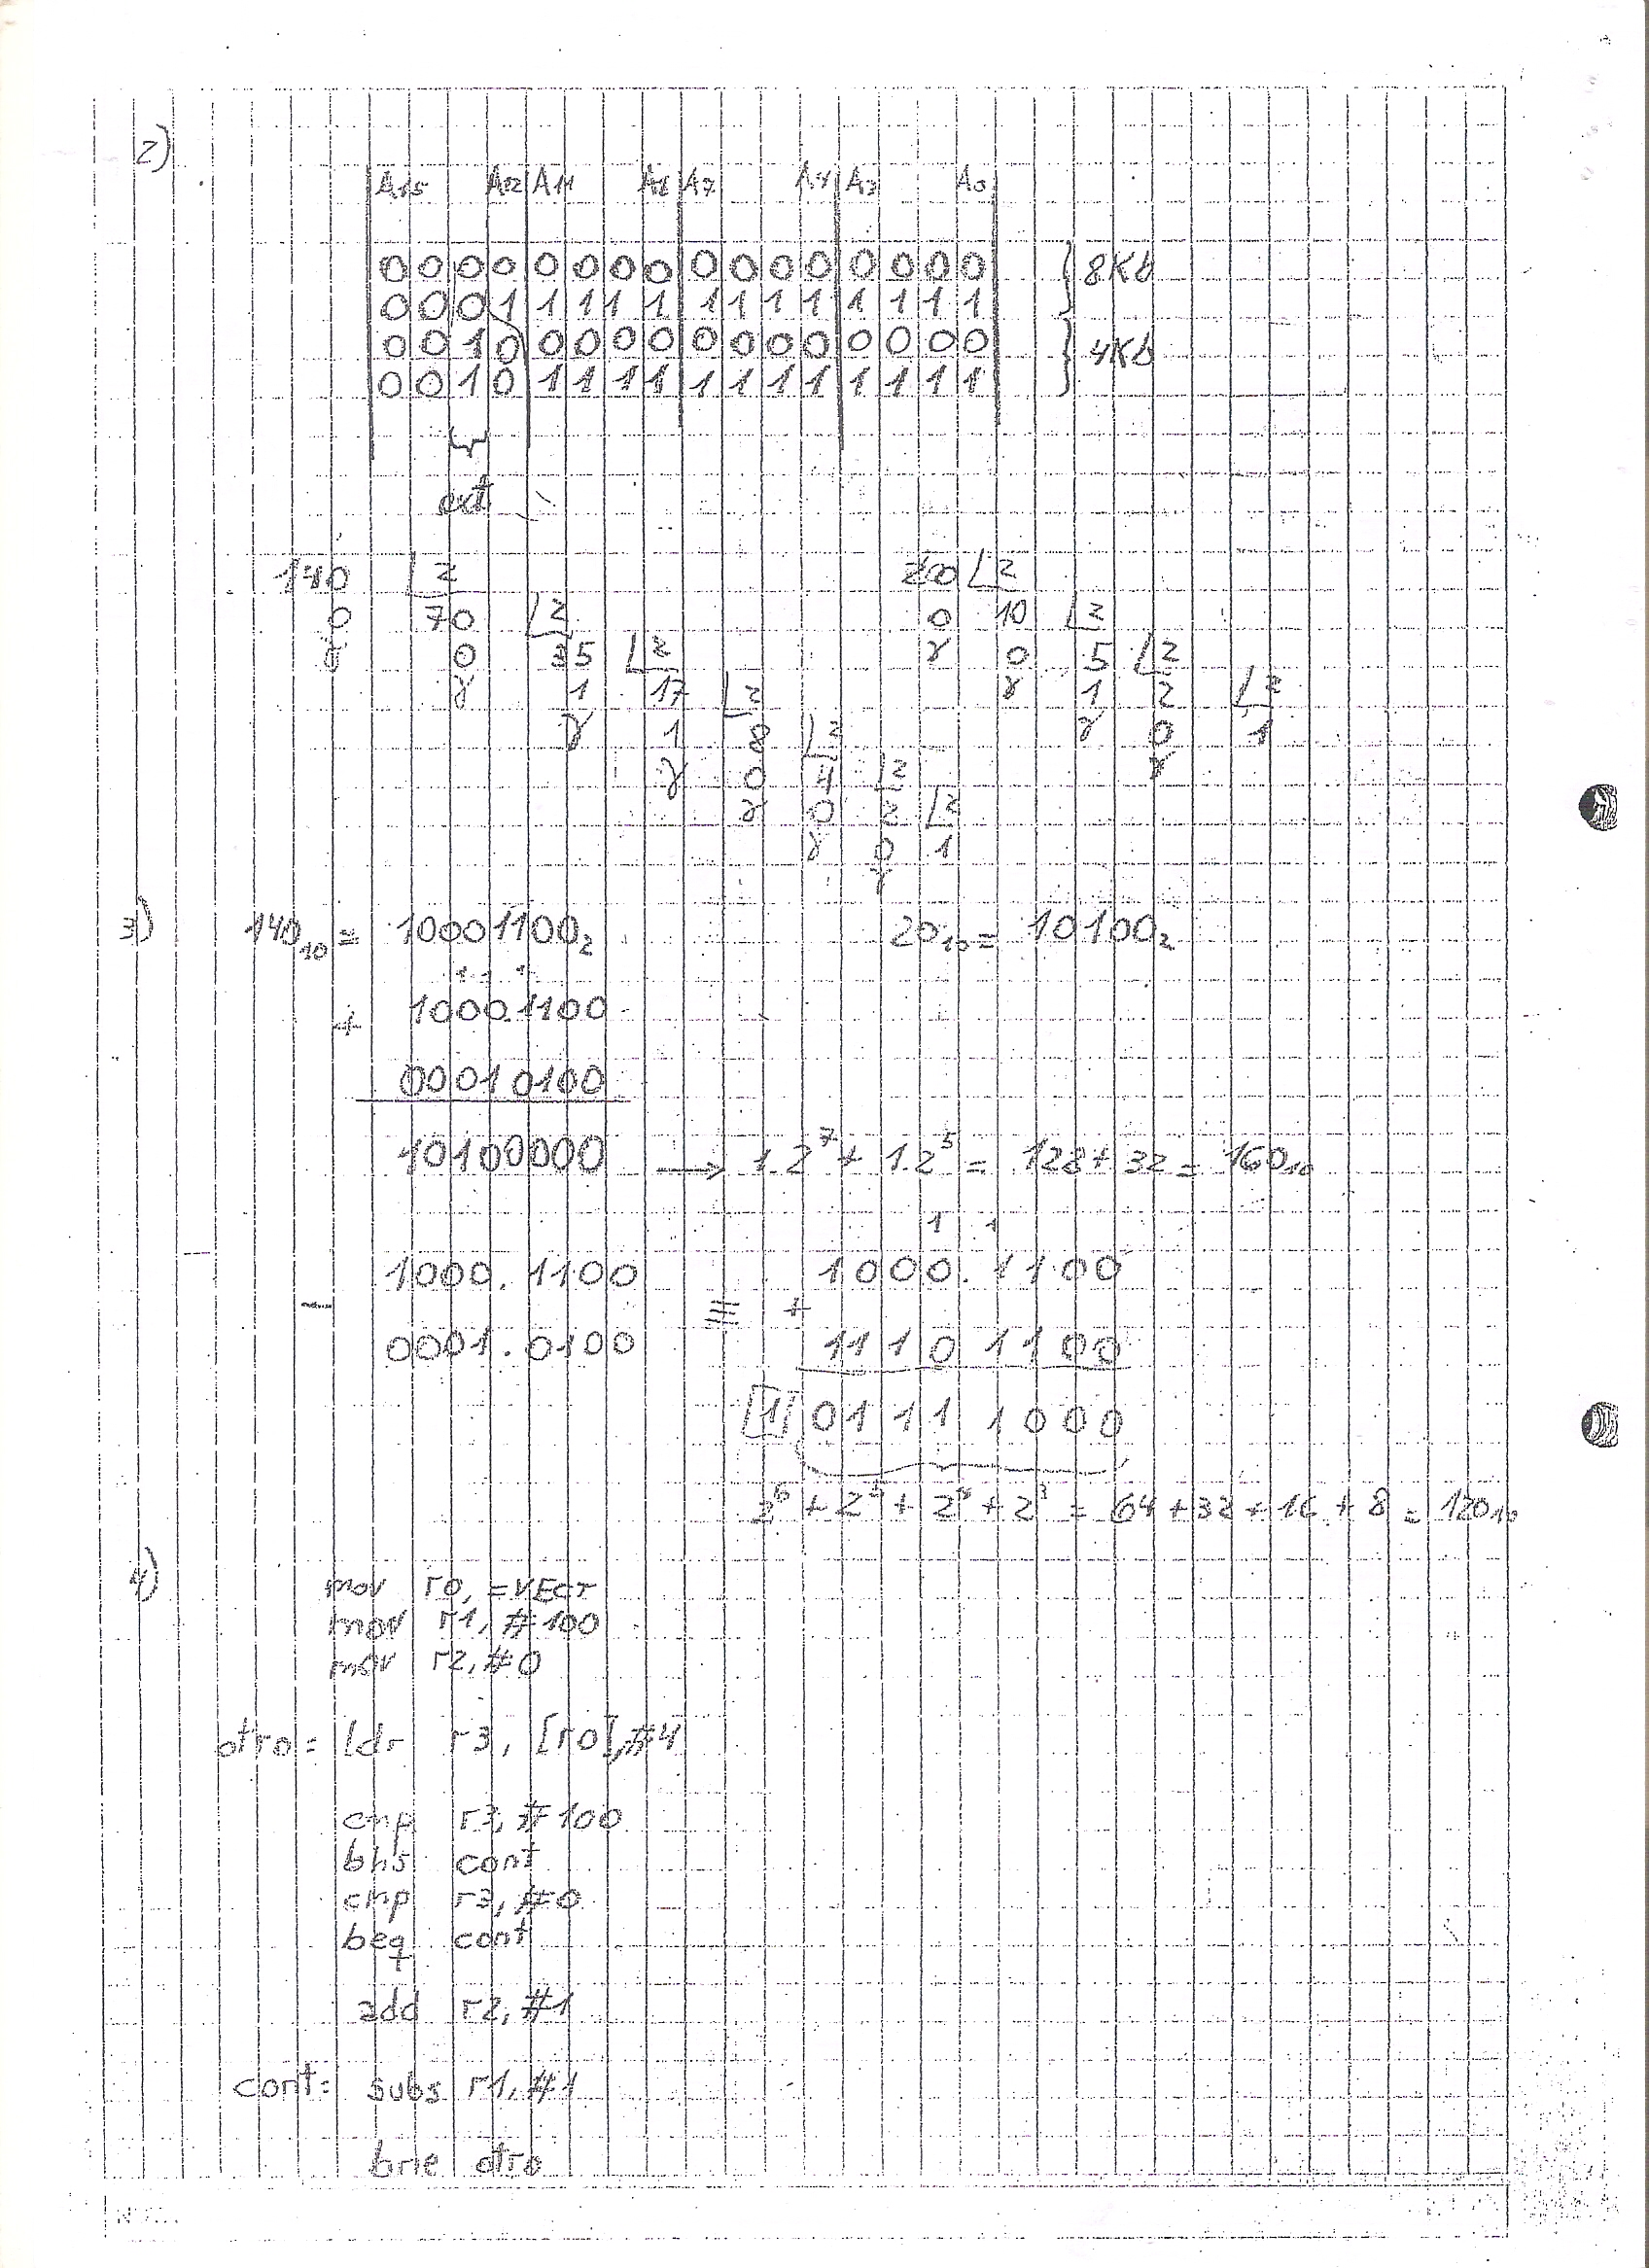 2)
A15 A12 A11 A8 A7 A4 A3 A0
0 0 0 0 0 0 0 0 0 0 0 0 0 0 0 0 } 8Kb
0 0 0 1 1 1 1 1 1 1 1 1 1 1 1 1
0 0 1 0 0 0 0 0 0 0 0 0 0 0 0 0 } 4Kb
0 0 1 0 1 1 1 1 1 1 1 1 1 1 1 1
ext
140 2 20 2
0 70 2 0 10 2
0 35 2 0 5 2
1 17 2 1 2 2
1 8 2 0 1
0 4 2
0 2 2
0 1
3) 140₁₀ = 10001100₂ 20₁₀ = 10100₂
1000.1100
+
00010100
10100000 → 1.2⁷ + 1.2⁵ = 128 + 32 = 160₁₀
1 1
1000.1100 1000.1100
- ≡ +
0001.0100 11101100
1 01111000
2⁶ + 2⁵ + 2⁴ + 2³ = 64 + 32 + 16 + 8 = 120₁₀
4) mov r0, =VECT
mov r1, #100
mov r2, #0
otro: ldr r3, [r0], #4
cmp r3, #100
bhs cont
cmp r3, #0
beq cont
add r2, #1
cont: subs r1, #1
bne otro